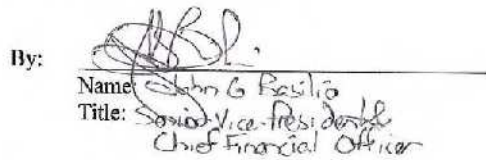 By:
Name: John G Basilio
Title: Senior Vice-President &
Chief Financial Officer